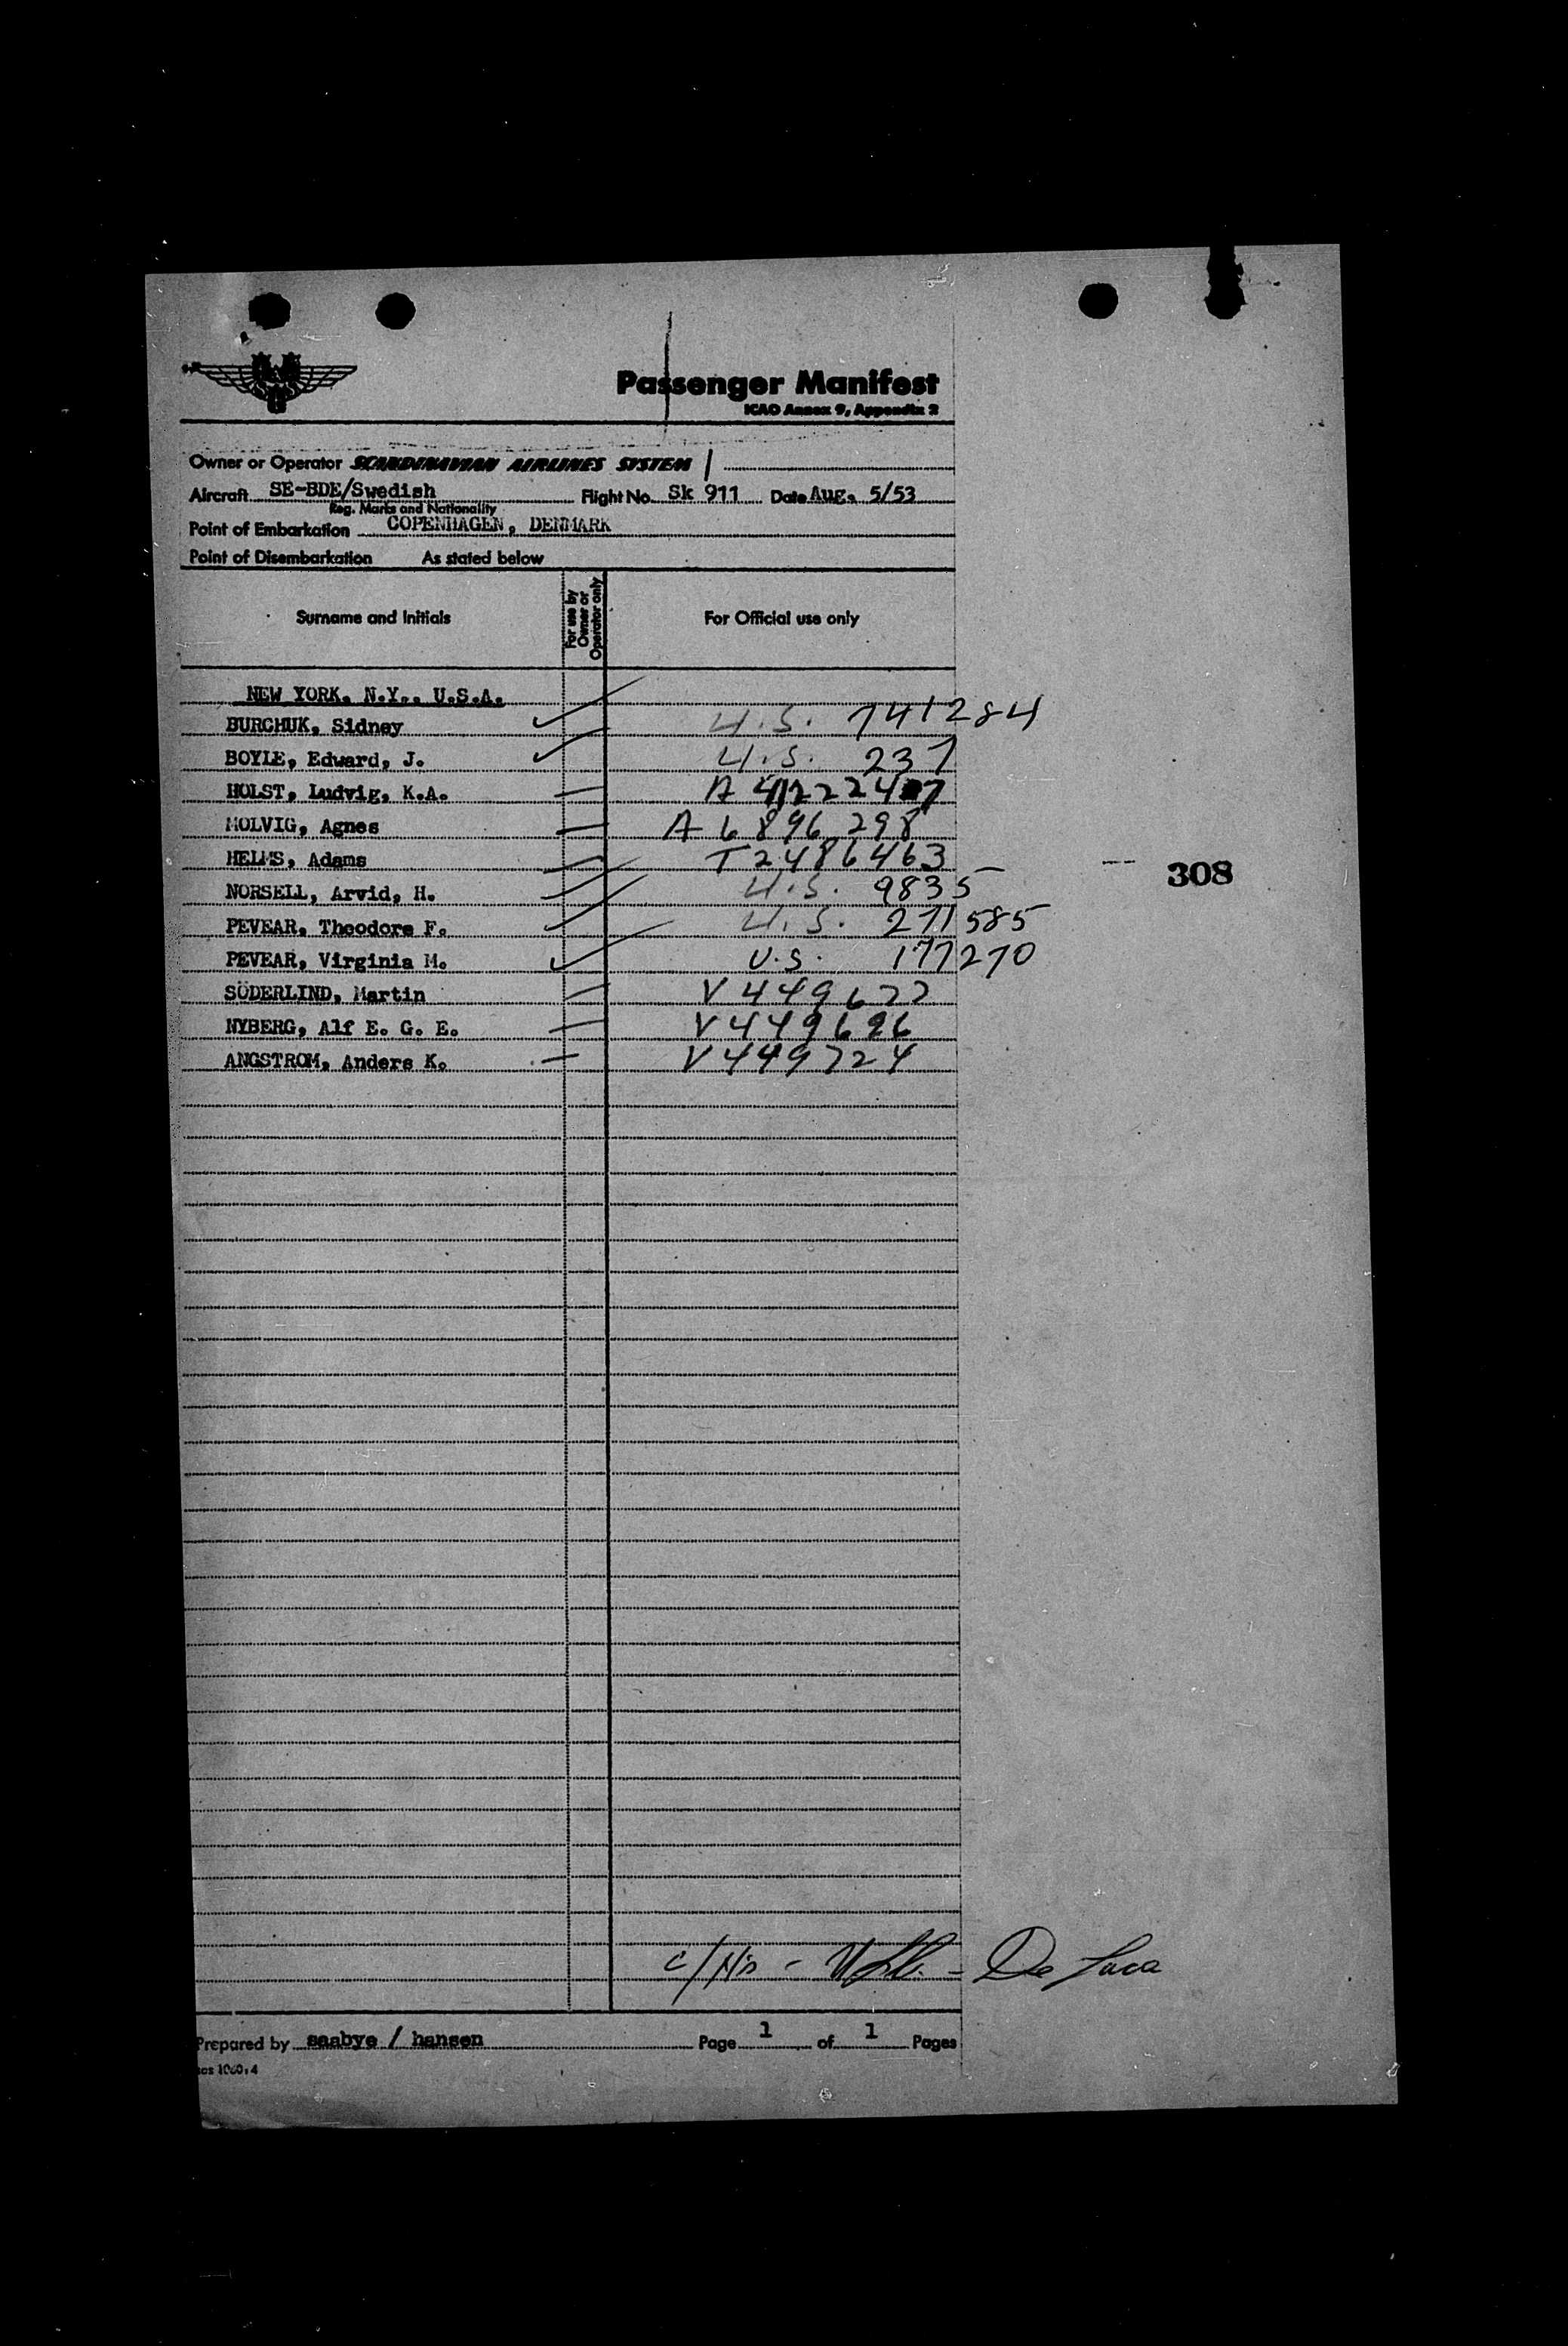 Passenger Manifest
ICAO Annex 9, Appendix 2
Owner or Operator SCANDINAVIAN AIRLINES SYSTEM
Aircraft SE-BDE/Swedish Flight No. Sk 911 Date Aug. 5/53
Reg. Marks and Nationality
Point of Embarkation COPENHAGEN, DENMARK
Point of Disembarkation As stated below
Surname and Initials For use by Owner or Operator only For Official use only
NEW YORK. N.Y.. U.S.A.
BURCHUK, Sidney U.S. 741284
BOYLE, Edward, J. U.S. 237
HOLST, Ludvig, K.A.
MOLVIG, Agnes A 6896298
HELMS, Adams T2486463
308
NORSELL, Arvid, H. U.S. 9835
PEVEAR, Theodore F. U.S. 271585
PEVEAR, Virginia M. U.S. 177270
SÖDERLIND, Martin V449622
NYBERG, Alf E. G. E. V449696
ANGSTROM, Anders K. V449724
De Luca
Prepared by saabye / hansen Page 1 of 1 Pages